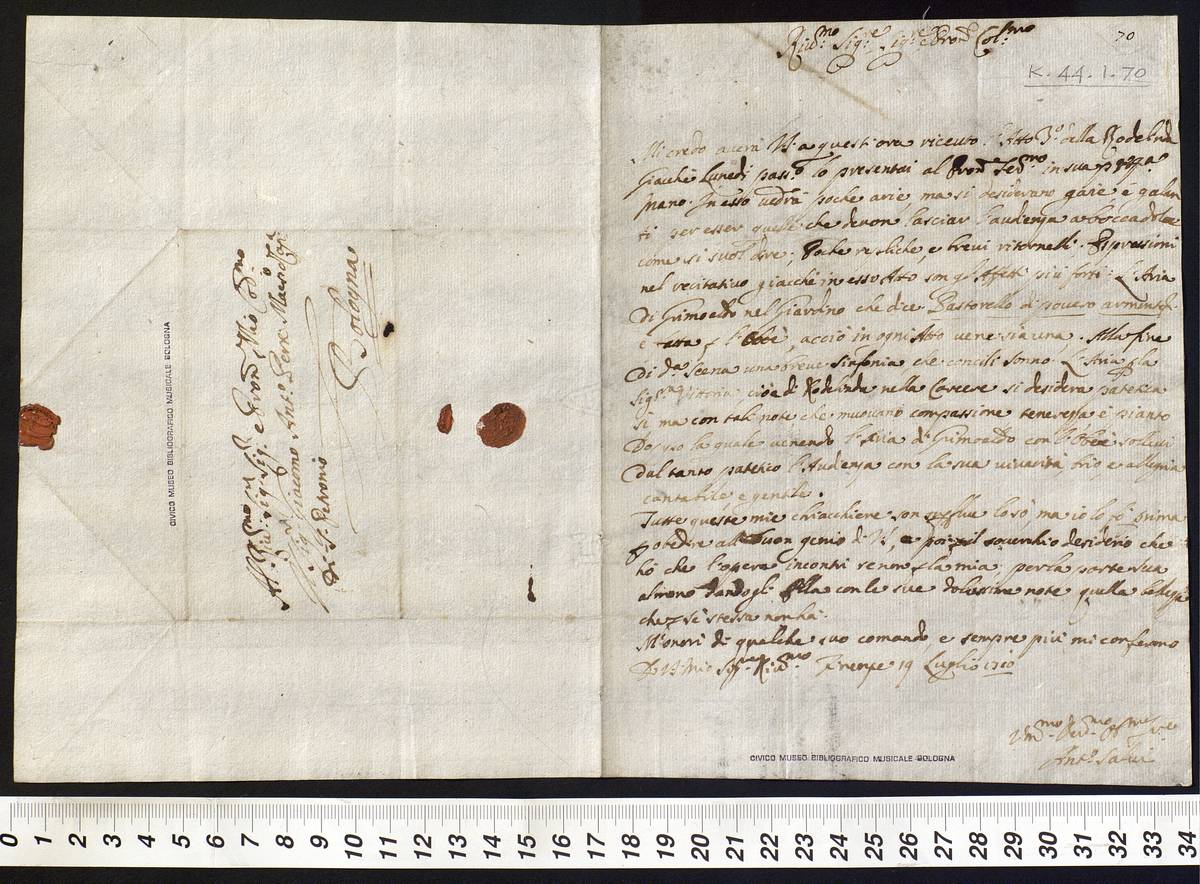 Al Rev.mo Sig.r Sig.r e Pron Mio Col.mo
Il Sig.r Giacomo Ant.o Perti Maestro di Cap.a
di S. Petronio
Bologna
CIVICO MUSEO BIBLIOGRAFICO MUSICALE BOLOGNA
70
Sig.re Sig.re e Pron Col.mo
K. 44. 1. 70
Mi credo averà VS. a quest'ora ricevuto l'Atto 3.o della Rodelinda
giachè Lunedì pass.o lo presentai al Pron Ser.mo in sua
mano. In esso vedrà poche arie, ma si desiderano gaie e galan
ti per esser quelle che devon lasciar l'audienza a bocca dolce
come si suol dire; Poche repliche, e brevi ritornelli. Espressioni
nel recitativo giacchè in esso Atto son gl'Affetti più forti. L'Aria
di Grimoaldo nel Giardino che dice Pastorello di povero armento
è fatta p l'Obbè, acciò in ogni Atto vene sia una. Alla fine
di d.a Scena una breve sinfonia che concili sonno. L'Aria p la
Sig.ra Vitoria cioè di Rodelinda nella Carcere si desidera patetica
sì ma con tali note che muovano compassione tenerezza e pianto
Doppo la quale venendo l'Aria di Grimoaldo con l'Obbè sollevi
dal tanto patetico l'Audienza con la sua vivacità brio e allegria
cantabile e gentile.
Tutte queste mie chiacchiere son superflue lo sò, ma io lo fò prima
p obedire al buon genio di VS, e poi p il soverchio desiderio che
hò che l'opera incontri se non p la mia, per la parte sua
almeno dandogli Ella con le sue dolcissime note quella bellezza
che p sè stessa non hà.
M'onori di qualche suo comando e sempre più mi confermo
Di VS Mio Sig.re Firenze 19 Luglio 1710
Ant.o Salvi
CIVICO MUSEO BIBLIOGRAFICO MUSICALE BOLOGNA
0 1 2 3 4 5 6 7 8 9 10 11 12 13 14 15 16 17 18 19 20 21 22 23 24 25 26 27 28 29 30 31 32 33 34